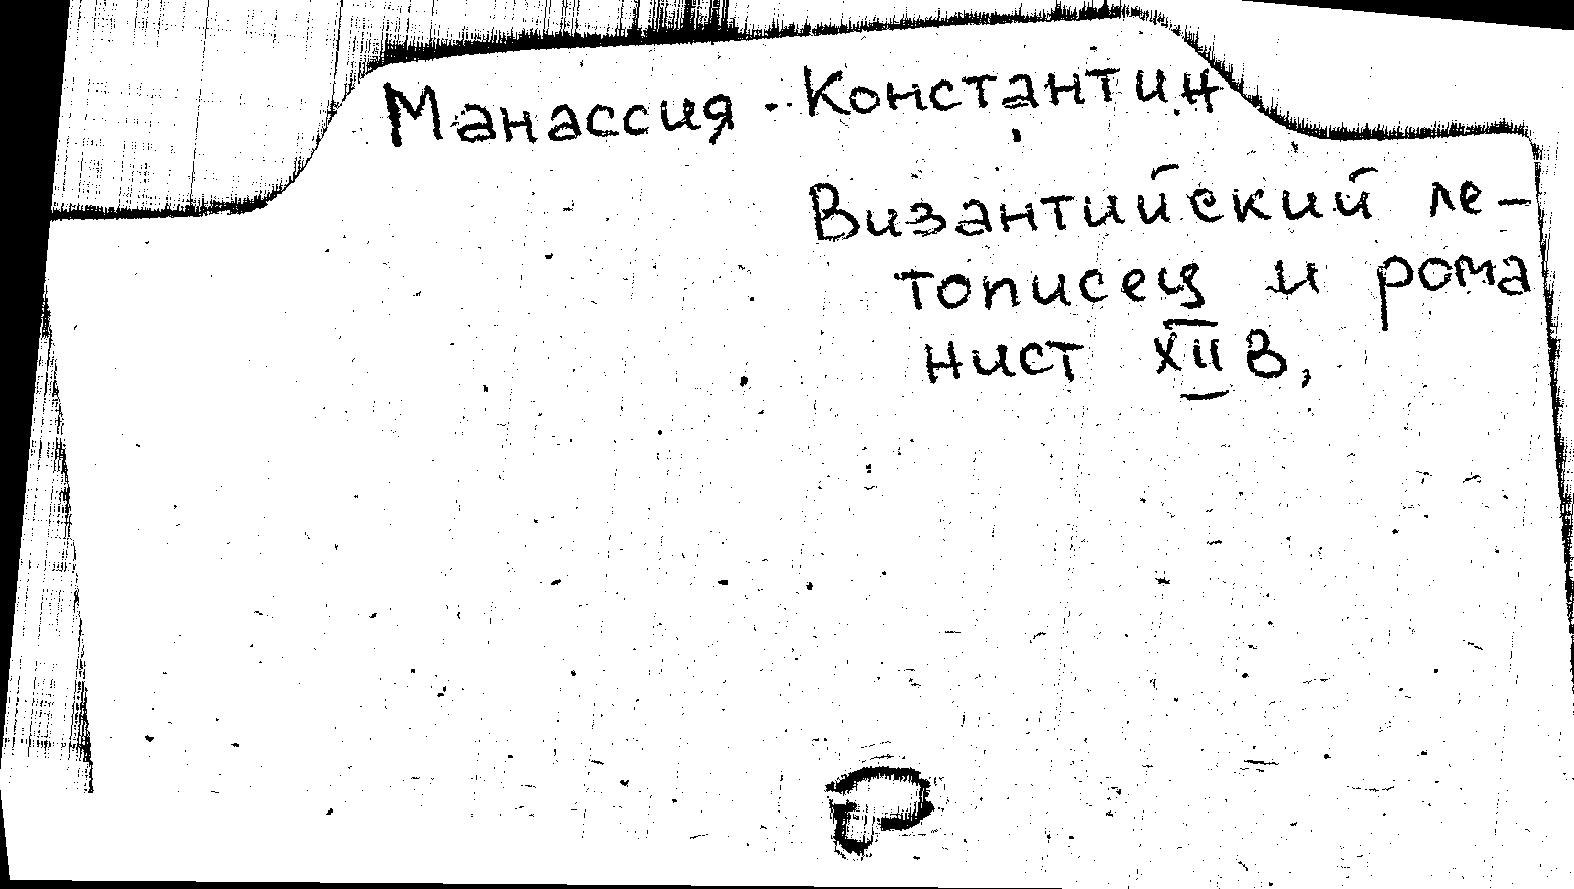 Манассия - Константин
Византийский ле-
тописец и рома
нист XII в.